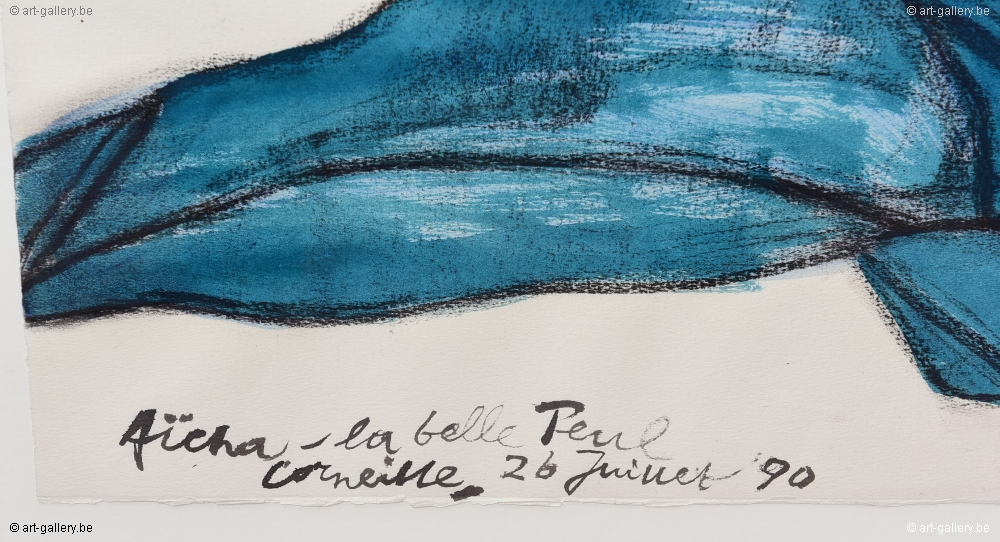 © art-gallery.be © art-gallery.be
Aïcha - la belle Peul
Corneille, 26 Juillet '90
© art-gallery.be © art-gallery.be